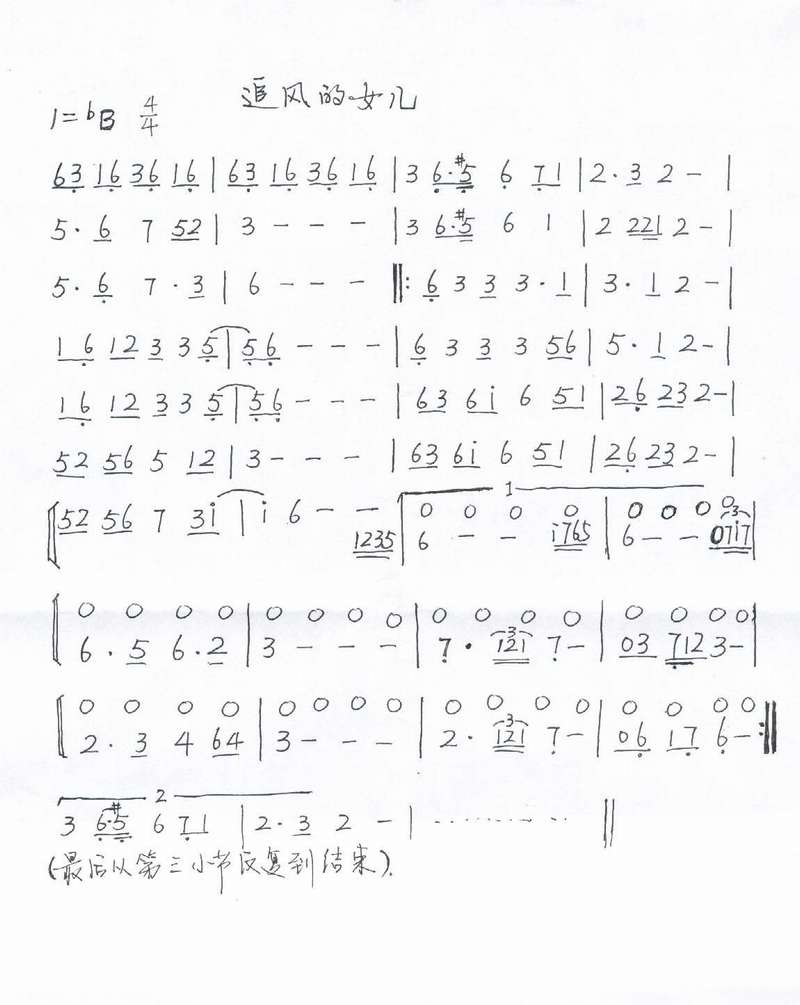 追风的女儿
1=ᵇB 4/4
63 16 36 16 | 63 16 36 16 | 3 6·#5 6 71 | 2·3 2 - |
5·6 7 52 | 3 - - - | 3 6·#5 6 1 | 2 221 2 - |
5·6 7·3 | 6 - - - ‖: 6 3 3 3·1 | 3·1 2 - |
16 12 3 3 5 | 56 - - - | 6 3 3 3 56 | 5·1 2 - |
16 12 3 3 5 | 56 - - - | 63 6i 6 51 | 26 23 2 - |
52 56 5 12 | 3 - - - | 63 6i 6 51 | 26 23 2 - |
1
52 56 7 3i | i 6 - - | 0 0 0 0 | 0 0 0 0 |
1235 | 6 - - i765 | 6 - - 07i7 |
0 0 0 0 | 0 0 0 0 | 0 0 0 0 | 0 0 0 0 |
6·5 6·2 | 3 - - - | 7· 121 7 - | 03 712 3 - |
0 0 0 0 | 0 0 0 0 | 0 0 0 0 | 0 0 0 0
2·3 4 64 | 3 - - - | 2· 121 7 - | 06 17 6 - :‖
2
3 6·#5 6 71 | 2·3 2 - | ············ ‖
(最后从第三小节反复到结束).